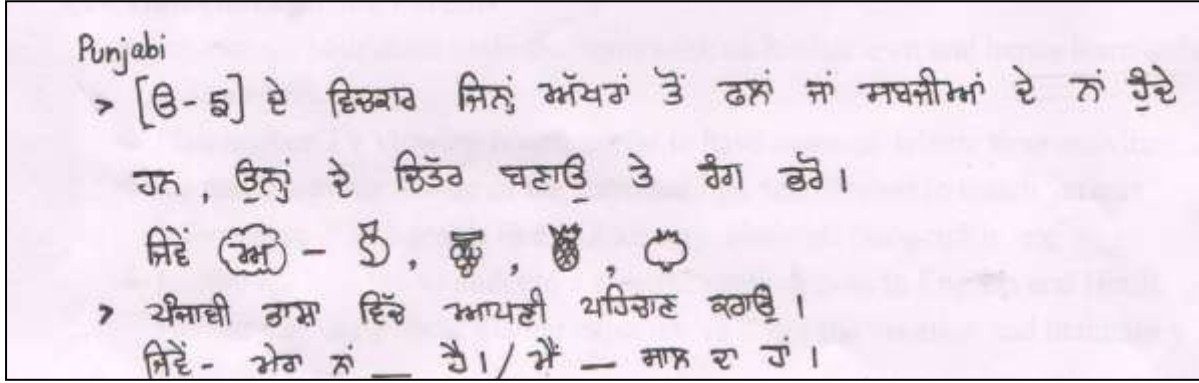 Punjabi
> [ੳ - ਙ] ਦੇ ਵਿਚਕਾਰ ਜਿਨ੍ਹਾਂ ਅੱਖਰਾਂ ਤੋਂ ਫਲਾਂ ਜਾਂ ਸਬਜੀਆਂ ਦੇ ਨਾਂ ਹੁੰਦੇ
ਹਨ , ਉਨ੍ਹਾਂ ਦੇ ਚਿੱਤਰ ਬਣਾਉ ਤੇ ਰੰਗ ਭਰੋ ।
ਜਿਵੇਂ ਅ - , , ,
> ਪੰਜਾਬੀ ਭਾਸ਼ਾ ਵਿੱਚ ਆਪਣੀ ਪਹਿਚਾਣ ਕਰਾਉ ।
ਜਿਵੇਂ - ਮੇਰਾ ਨਾਂ __ ਹੈ। / ਮੈਂ __ ਸਾਲ ਦਾ ਹਾਂ ।